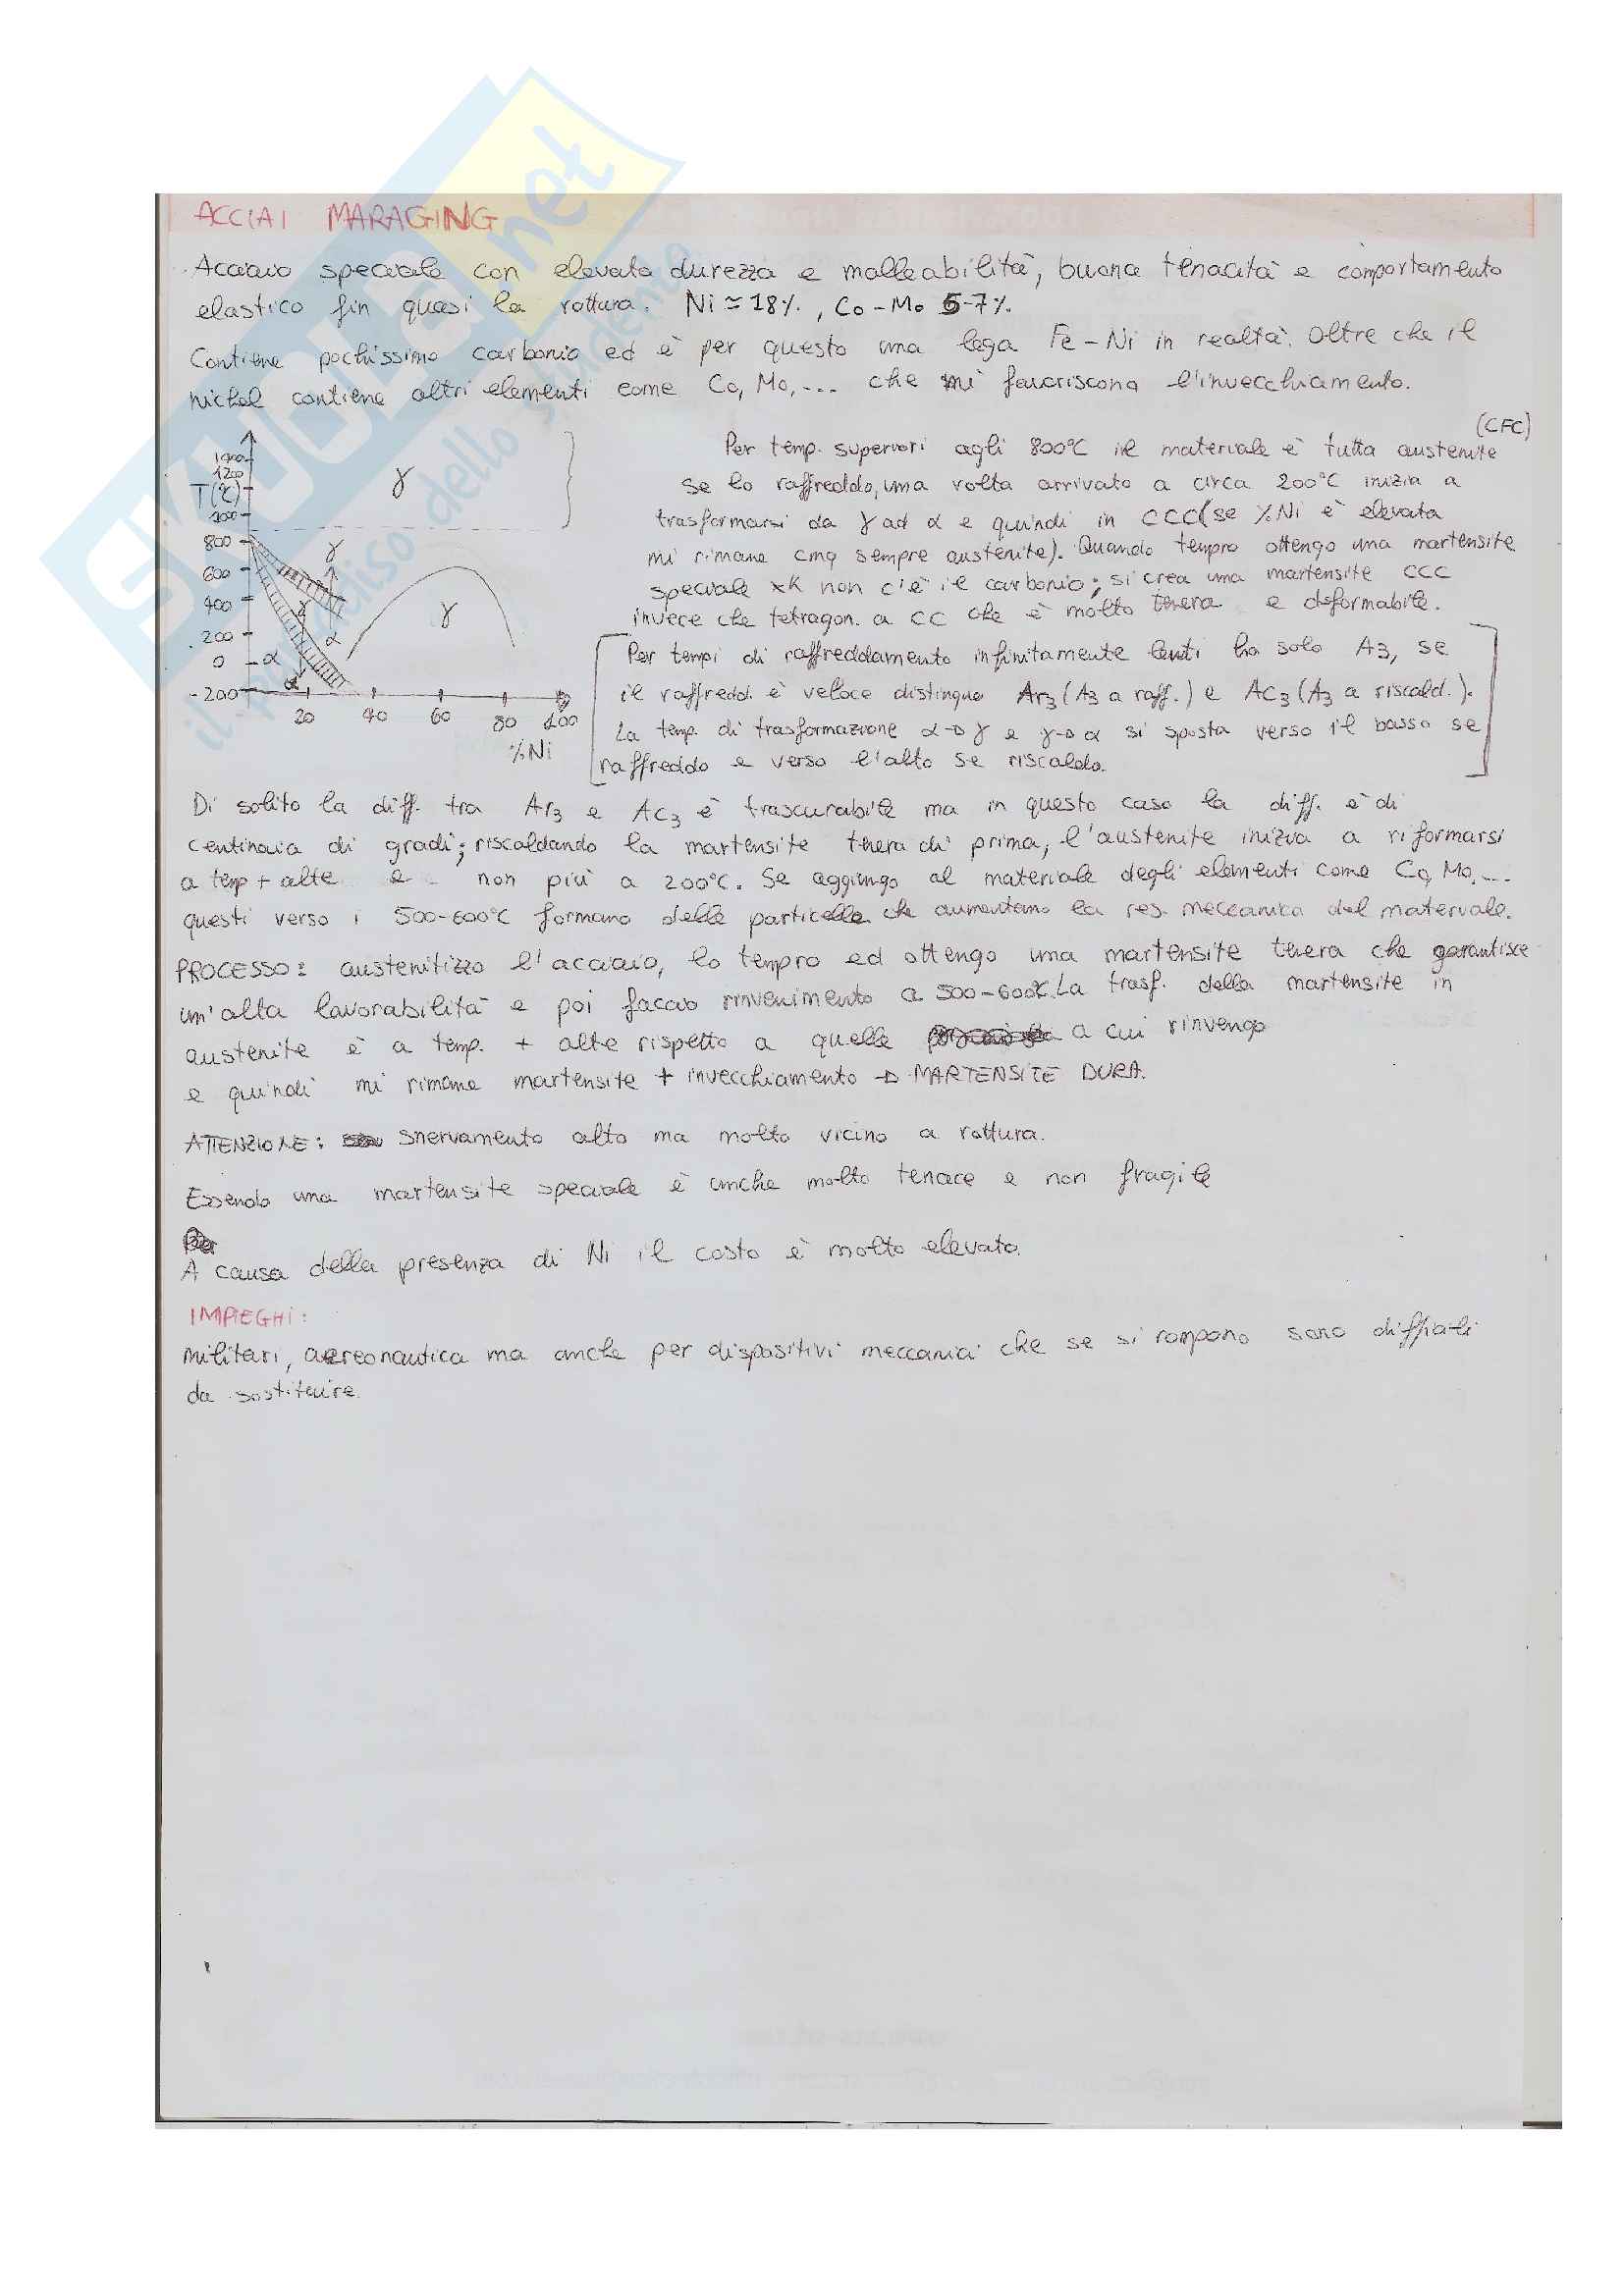 ACCIAI MARAGING
Acciaio speciale con elevata durezza e malleabilità, buona tenacità e comportamento
elastico fin quasi la rottura. Ni ≃ 18%, Co-Mo 5-7%.
Contiene pochissimo carbonio ed è per questo una lega Fe-Ni in realtà. Oltre che il
nichel contiene altri elementi come Co, Mo,... che mi favoriscono l'invecchiamento.
(CFC)
Per temp. superiori agli 800°C il materiale è tutta austenite
Se lo raffreddo, una volta arrivato a circa 200°C inizia a
trasformarsi da γ ad α e quindi in CCC (se %Ni è elevata
mi rimane cmq sempre austenite). Quando tempro ottengo una martensite
speciale xk non c'è il carbonio; si crea una martensite CCC
invece che tetragon. a CC che è molto tenera e deformabile.
Per tempi di raffreddamento infinitamente lenti ho solo A3, se
il raffredd. è veloce distinguo Ar3 (A3 a raff.) e AC3 (A3 a riscald.).
La temp. di trasformazione α→γ e γ→α si sposta verso il basso se
raffreddo e verso l'alto se riscaldo.
T(°C)
1200
1000
800
600
400
200
0
-200
20 40 60 80 100
%Ni
γ
γ
γ
γ
α
α
α
Di solito la diff. tra Ar3 e AC3 è trascurabile ma in questo caso la diff. è di
centinaia di gradi; riscaldando la martensite tenera di prima, l'austenite inizia a riformarsi
a temp + alte e non più a 200°C. Se aggiungo al materiale degli elementi come Co, Mo,...
questi verso i 500-600°C formano delle particelle che aumentano la res. meccanica del materiale.
PROCESSO: austenitizzo l'acciaio, lo tempro ed ottengo una martensite tenera che garantisce
un'alta lavorabilità e poi faccio rinvenimento a 500-600°C. La trasf. della martensite in
austenite è a temp. + alte rispetto a quelle a cui rinvengo
e quindi mi rimane martensite + invecchiamento → MARTENSITE DURA.
ATTENZIONE: snervamento alto ma molto vicino a rottura.
Essendo una martensite speciale è anche molto tenace e non fragile
A causa della presenza di Ni il costo è molto elevato.
IMPIEGHI:
militari, aereonautica ma anche per dispositivi meccanici che se si rompono sono difficili
da sostituire.
skuola.net
il paradiso dello studente